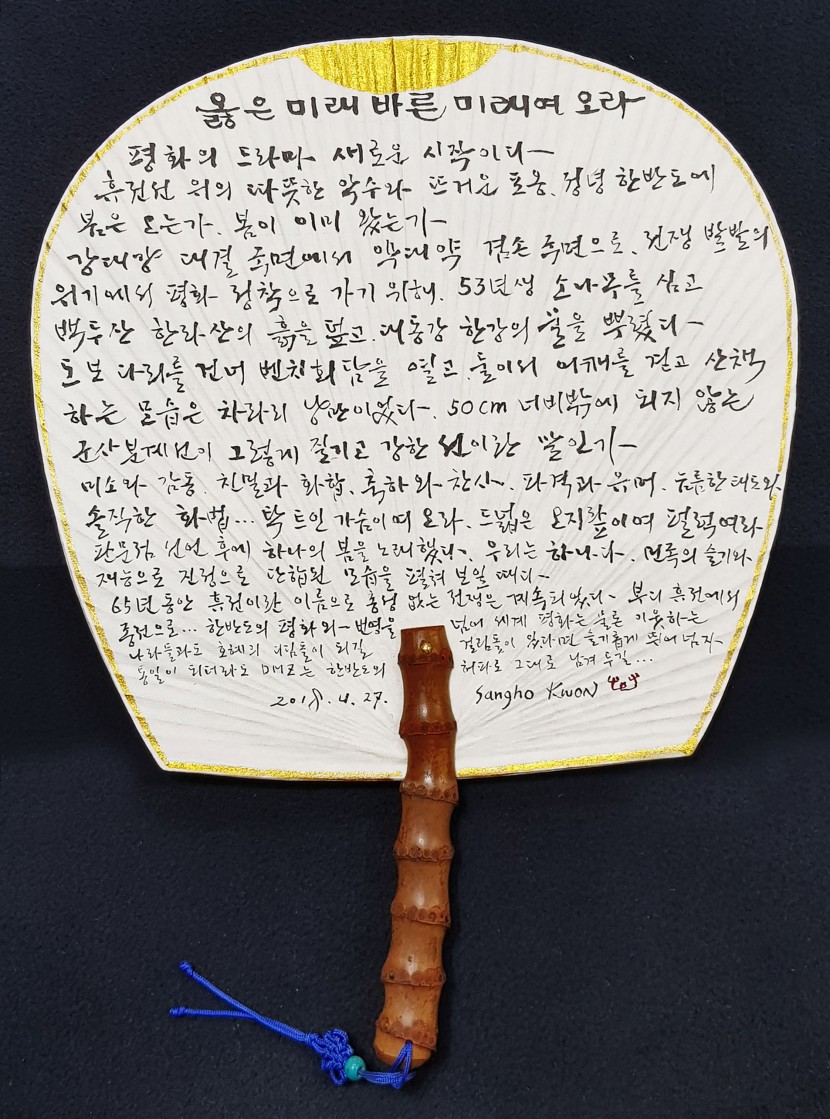 옳은 미래 바른 미래여 오라
평화의 드라마 새로운 시작이다
휴전선 위의 따뜻한 악수와 뜨거운 포옹. 정녕 한반도에
봄은 오는가. 봄이 이미 왔는가
강대강 대결 국면에서 약대약 겸손 국면으로. 전쟁 발발의
위기에서 평화 정착으로 가기 위해. 53년생 소나무를 심고
백두산 한라산의 흙을 덮고. 대동강 한강의 물을 뿌렸다
도보 다리를 건너 벤치회담을 열고. 둘이서 어깨를 걷고 산책
하는 모습은 차라리 낭만이었다. 50cm 너비밖에 되지 않는
군사분계선이 그렇게 질기고 강한 선이란 말인가
미소와 감동. 친밀과 화합. 축하와 찬사. 파격과 유머. 늠름한 태도와
솔직한 화법... 탁 트인 가슴이여 오라. 드넓은 오지랖이여 펄럭여라
판문점 선언 후에 하나의 봄을 노래했다. 우리는 하나다. 민족의 슬기와
재능으로 진정으로 단합된 모습을 펼쳐 보일 때다
65년 동안 휴전이란 이름으로 총성 없는 전쟁은 계속되었다. 부디 휴전에서
종전으로... 한반도의 평화와 번영을 넘어 세계 평화는 물론 이웃하는
나라들과도 호혜의 디딤돌이 되길 걸림돌이 있다면 슬기롭게 뛰어 넘자
통일이 되더라도 DMZ는 한반도의 허파로 그대로 남겨 두길...
2018. 4. 27. Sangho Kwon